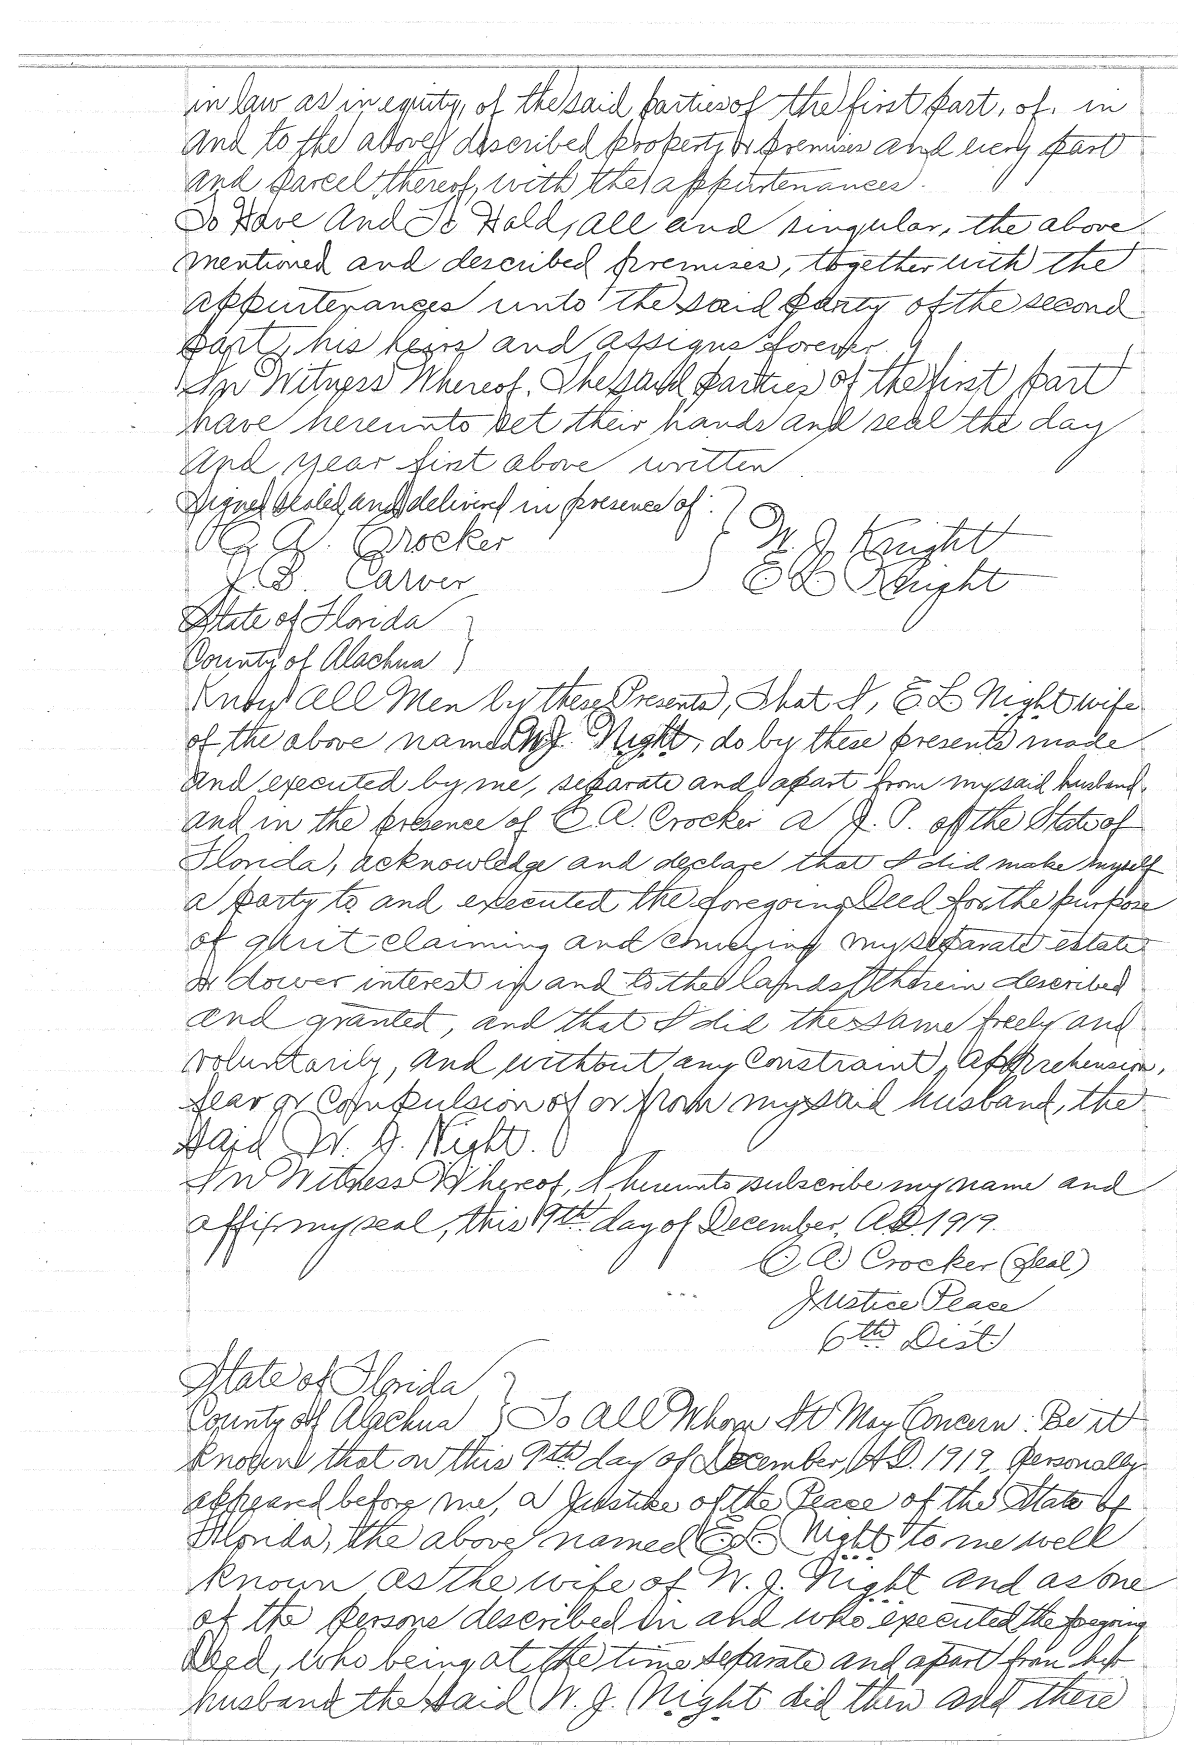 in law as in equity, of the said parties of the first part, of, in
and to the above described property or premises and every part
and parcel thereof, with the appurtenances.
To Have And To Hold, All and singular, the above
mentioned and described premises, together with the
appurtenances unto the said party of the second
part, his heirs and assigns forever.
In Witness Whereof, The said parties of the first part
have hereunto set their hands and seal the day
and year first above written
Signed sealed and delivered in presence of:
C. A. Crocker W. J. Knight
J. B. Carver E L Knight
State of Florida
County of Alachua
Know All Men by these Presents, That I, E L Night wife
of the above named W. J. Night, do by these presents made
and executed by me, separate and apart from my said husband,
and in the presence of C. A. Crocker a J. P. of the State of
Florida, acknowledge and declare that I did make myself
a party to and executed the foregoing Deed for the purpose
of quit claiming and conveying my separate estate
or dower interest in and to the lands therein described
and granted, and that I did the same freely and
voluntarily, and without any constraint, apprehension,
fear or compulsion of or from my said husband, the
said W. J. Night.
In Witness Whereof, I hereunto subscribe my name and
affix my seal, this 9th day of December, A.D. 1919.
C. A. Crocker (Seal)
Justice Peace
6th Dist
State of Florida
County of Alachua To All Whom It May Concern: Be it
known that on this 9th day of December, A.D. 1919, personally
appeared before me, a Justice of the Peace of the State of
Florida, the above named E L Night to me well
known as the wife of W. J. Night and as one
of the persons described in and who executed the foregoing
Deed, who being at the time separate and apart from her
husband the said W. J. Night did then and there